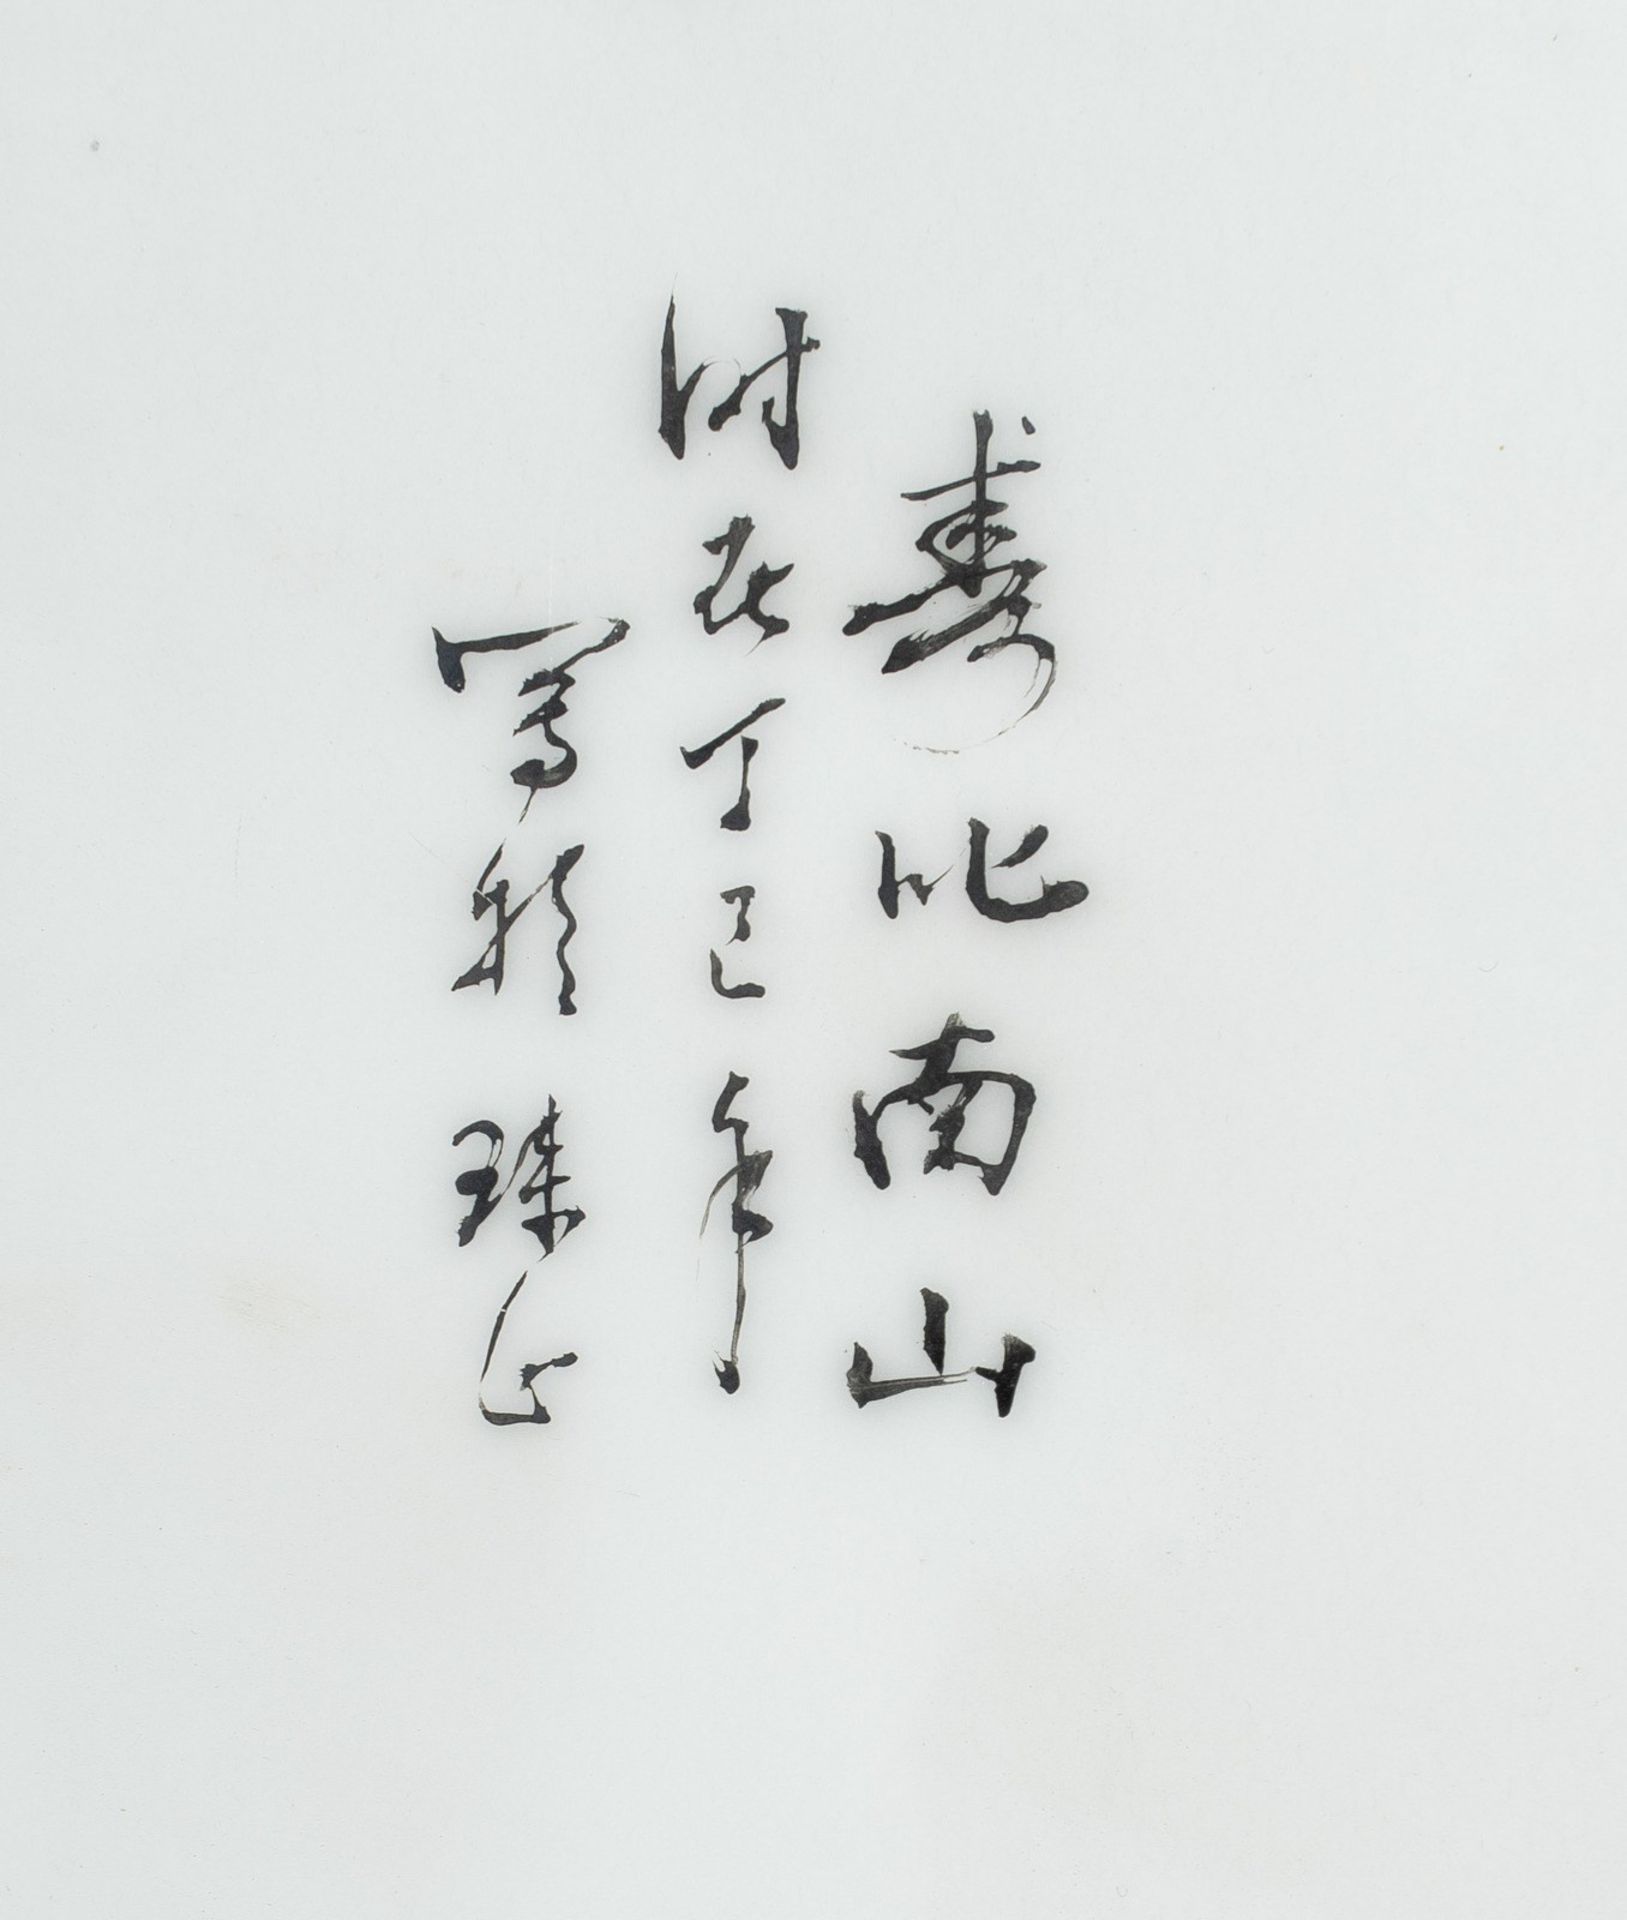 壽比南山
時在丁巳年
寫於珠山